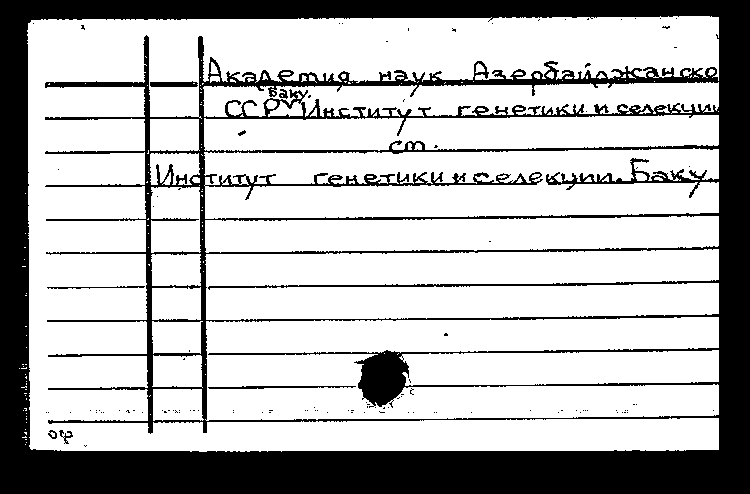 Академия наук Азербайджанско
Баку.
ССР Институт генетики и селекции
ст.
Институт генетики и селекции. Баку
оф